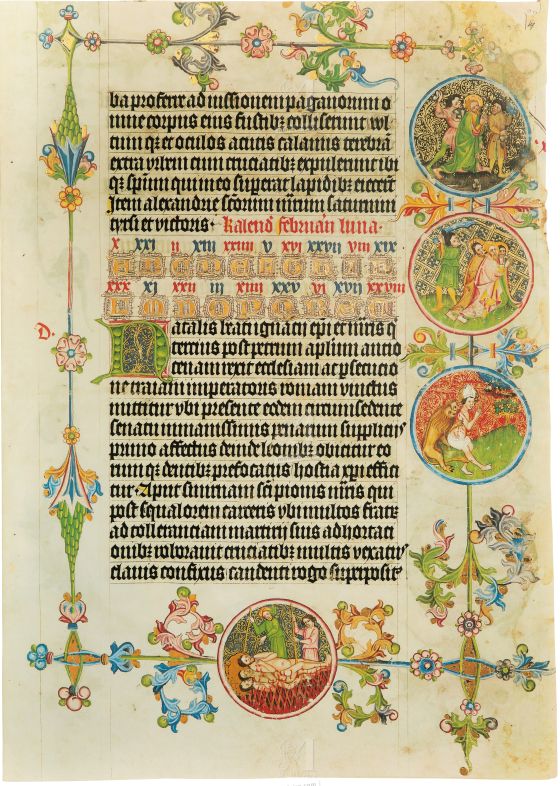 ba proferre ad iussionem paganorum o
mne corpus eius fustibꝫ colliserunt vul
tum qꝫ et oculos acutis calamis terebrā
extra vrbem cum cruciatibꝫ expulerunt ibi
qꝫ sp̄m qui in eo superat lapidibꝫ eiecerūt
Item alexandrie sc̄orum mr̄um saturnini
tyrsi et victoris. Kalend februarij luna.
x xxi ii xiii xxiiii v xvi xxvii viii xix
xxx xi xxii iii xiiii xxv vi xvii xxviii
D.
Natalis beati ignacii ep̄i et mr̄is q
tercius post petrum ap̄lum antio
cenam rexit ecclesiam ac ꝑsecucio
ne traiani imperatoris romam vinctus
mittitur vbi presente eodem circumsedente
senatu immanissimis penarum supplicijs
primo affectus deinde leonibꝫ obicitur eo
rum qꝫ dentibꝫ prefocatus hostia xp̄i effici
tur. Aput smirnam sc̄i pionis mr̄is qui
post squalorem carceris vbi multos fratrꝫ
ad tollerantiam martirij suis adhortaci
onibꝫ roborauit cruciatibꝫ multis vexatꝰ
clauis confixus candenti rogo superpositꝰ